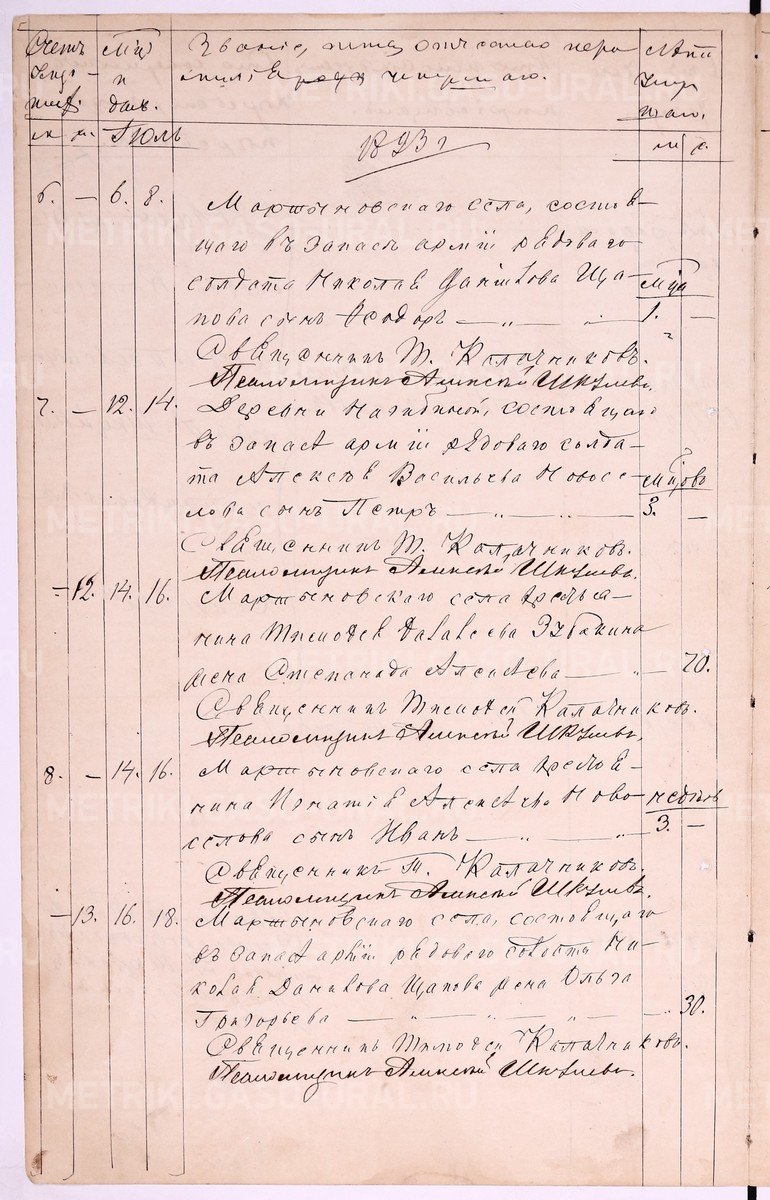 Счетъ Мѣс Званіе, имя, отчество и фа Лѣта
и милія умершаго. умер
день. шаго.
м. ж. Іюль 1893 г м. ж.
6. — 6. 8. Мартыновскаго села, состоя
щаго въ запасѣ арміи рядоваго
солдата Николая Данилова Ща- мѣсяца
пова сынъ Ѳеодоръ — „ — „ 1. —
Священникъ Т. Калачниковъ.
Псаломщикъ Шкуевъ.
7. — 12. 14. Деревни Нагибиной, состоящаго
въ запасѣ арміи рядоваго солда-
та Алексѣя Васильева Новосе- мѣсяцовъ
лова сынъ Петръ — „ — „ — 3. —
Священникъ Т. Калачниковъ.
Псаломщикъ Шкуевъ.
— 12. 14. 16. Мартыновскаго села крестья-
нина Тимофея Савасѣева Зубакина
жена Степанида Алексѣева — „ — 70.
Священникъ Тимофей Калачниковъ.
Псаломщикъ Шкуевъ.
8. — 14. 16. Мартыновскаго села крестья-
нина Игнатія Алексѣева Ново- недѣль
селова сынъ Иванъ — „ — „ 3. —
Священникъ Т. Калачниковъ.
Псаломщикъ Шкуевъ.
— 13. 16. 18. Мартыновскаго села, состоящаго
въ запасѣ арміи рядового солдата Ни-
колая Данилова Щапова жена Ольга
Григорьева — „ — „ — „ — 30.
Священникъ Тимофей Калачниковъ.
Псаломщикъ Шкуевъ.